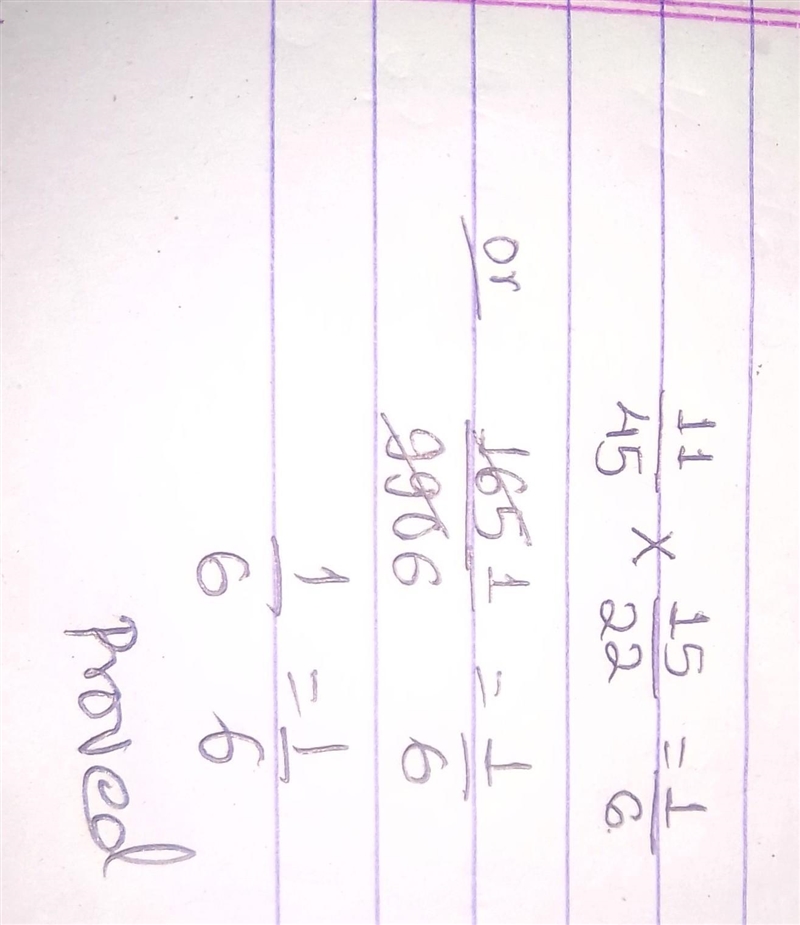 11/45 × 15/22 = 1/6
or 165/990 1/6 = 1/6
1/6 = 1/6
Proved